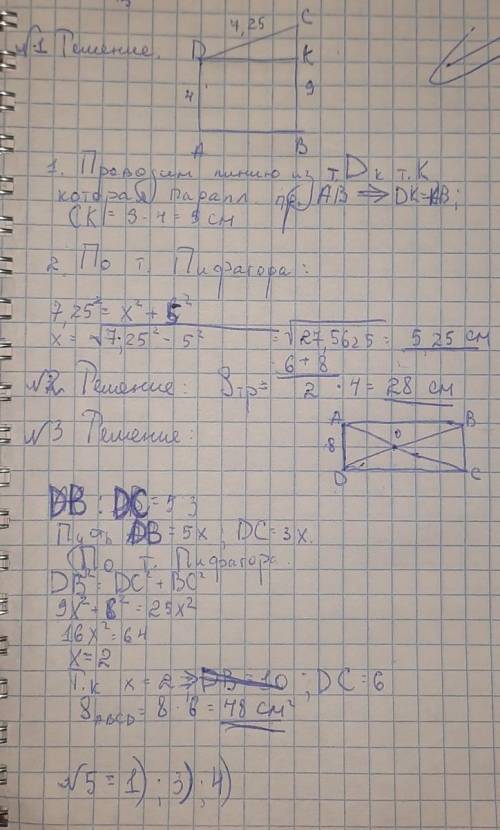 №1 Решение.
4,25
C
D
K
4
9
A
B
1. Проводим линию из т. D к т. K
которая паралл. пр. AB ⇒ DK=AB;
CK = 9-4=5 см
2. По т. Пифагора:
7,25² = x² + 5²
x = √7,25² - 5² = √27,5625 = 5,25 см
№2 Решение: Sтр = 6+8/2 · 4 = 28 см
№3 Решение:
A
B
O
8
D
C
DB : DC = 5 3
Пусть DB = 5x, DC = 3x.
По т. Пифагора.
DB² = DC² + BC²
9x² + 8² = 25x²
16x² = 64
x = 2
Т.к x = 2 ⇒ DB = 10; DC = 6
SABCD = 8 · 6 = 48 см²
№5 = 1) ; 3) ; 4)